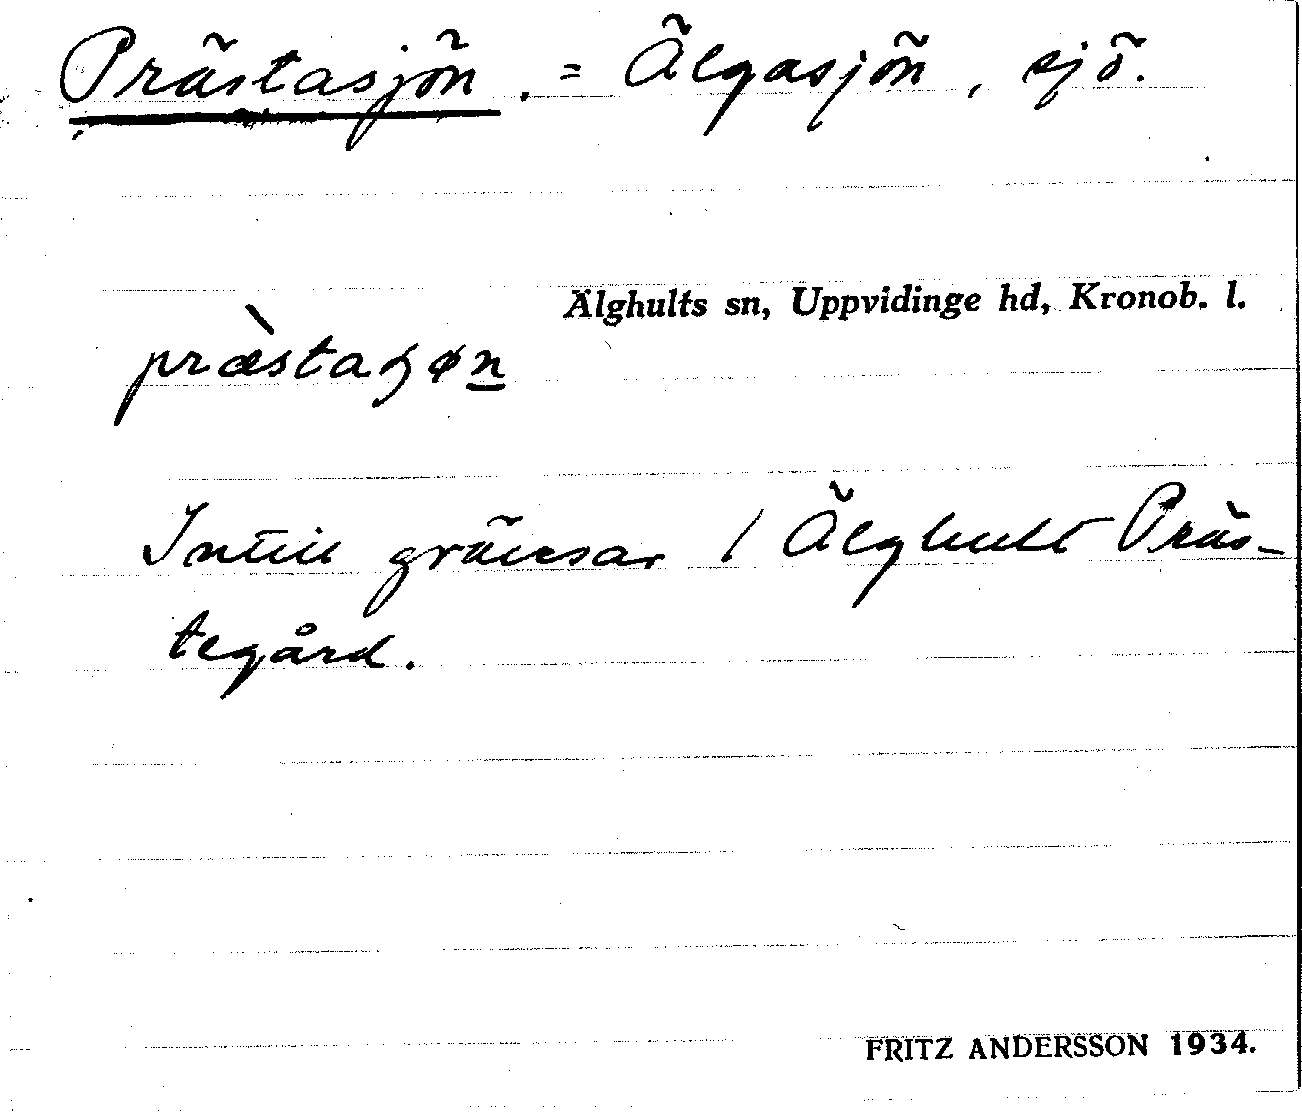 Prästasjön. = Älgasjön, sjö.
Älghults sn, Uppvidinge hd, Kronob. l.
præ̀staɧøn
Intill gränsar / Älghult Präs-
tegård.
FRITZ ANDERSSON 1934.